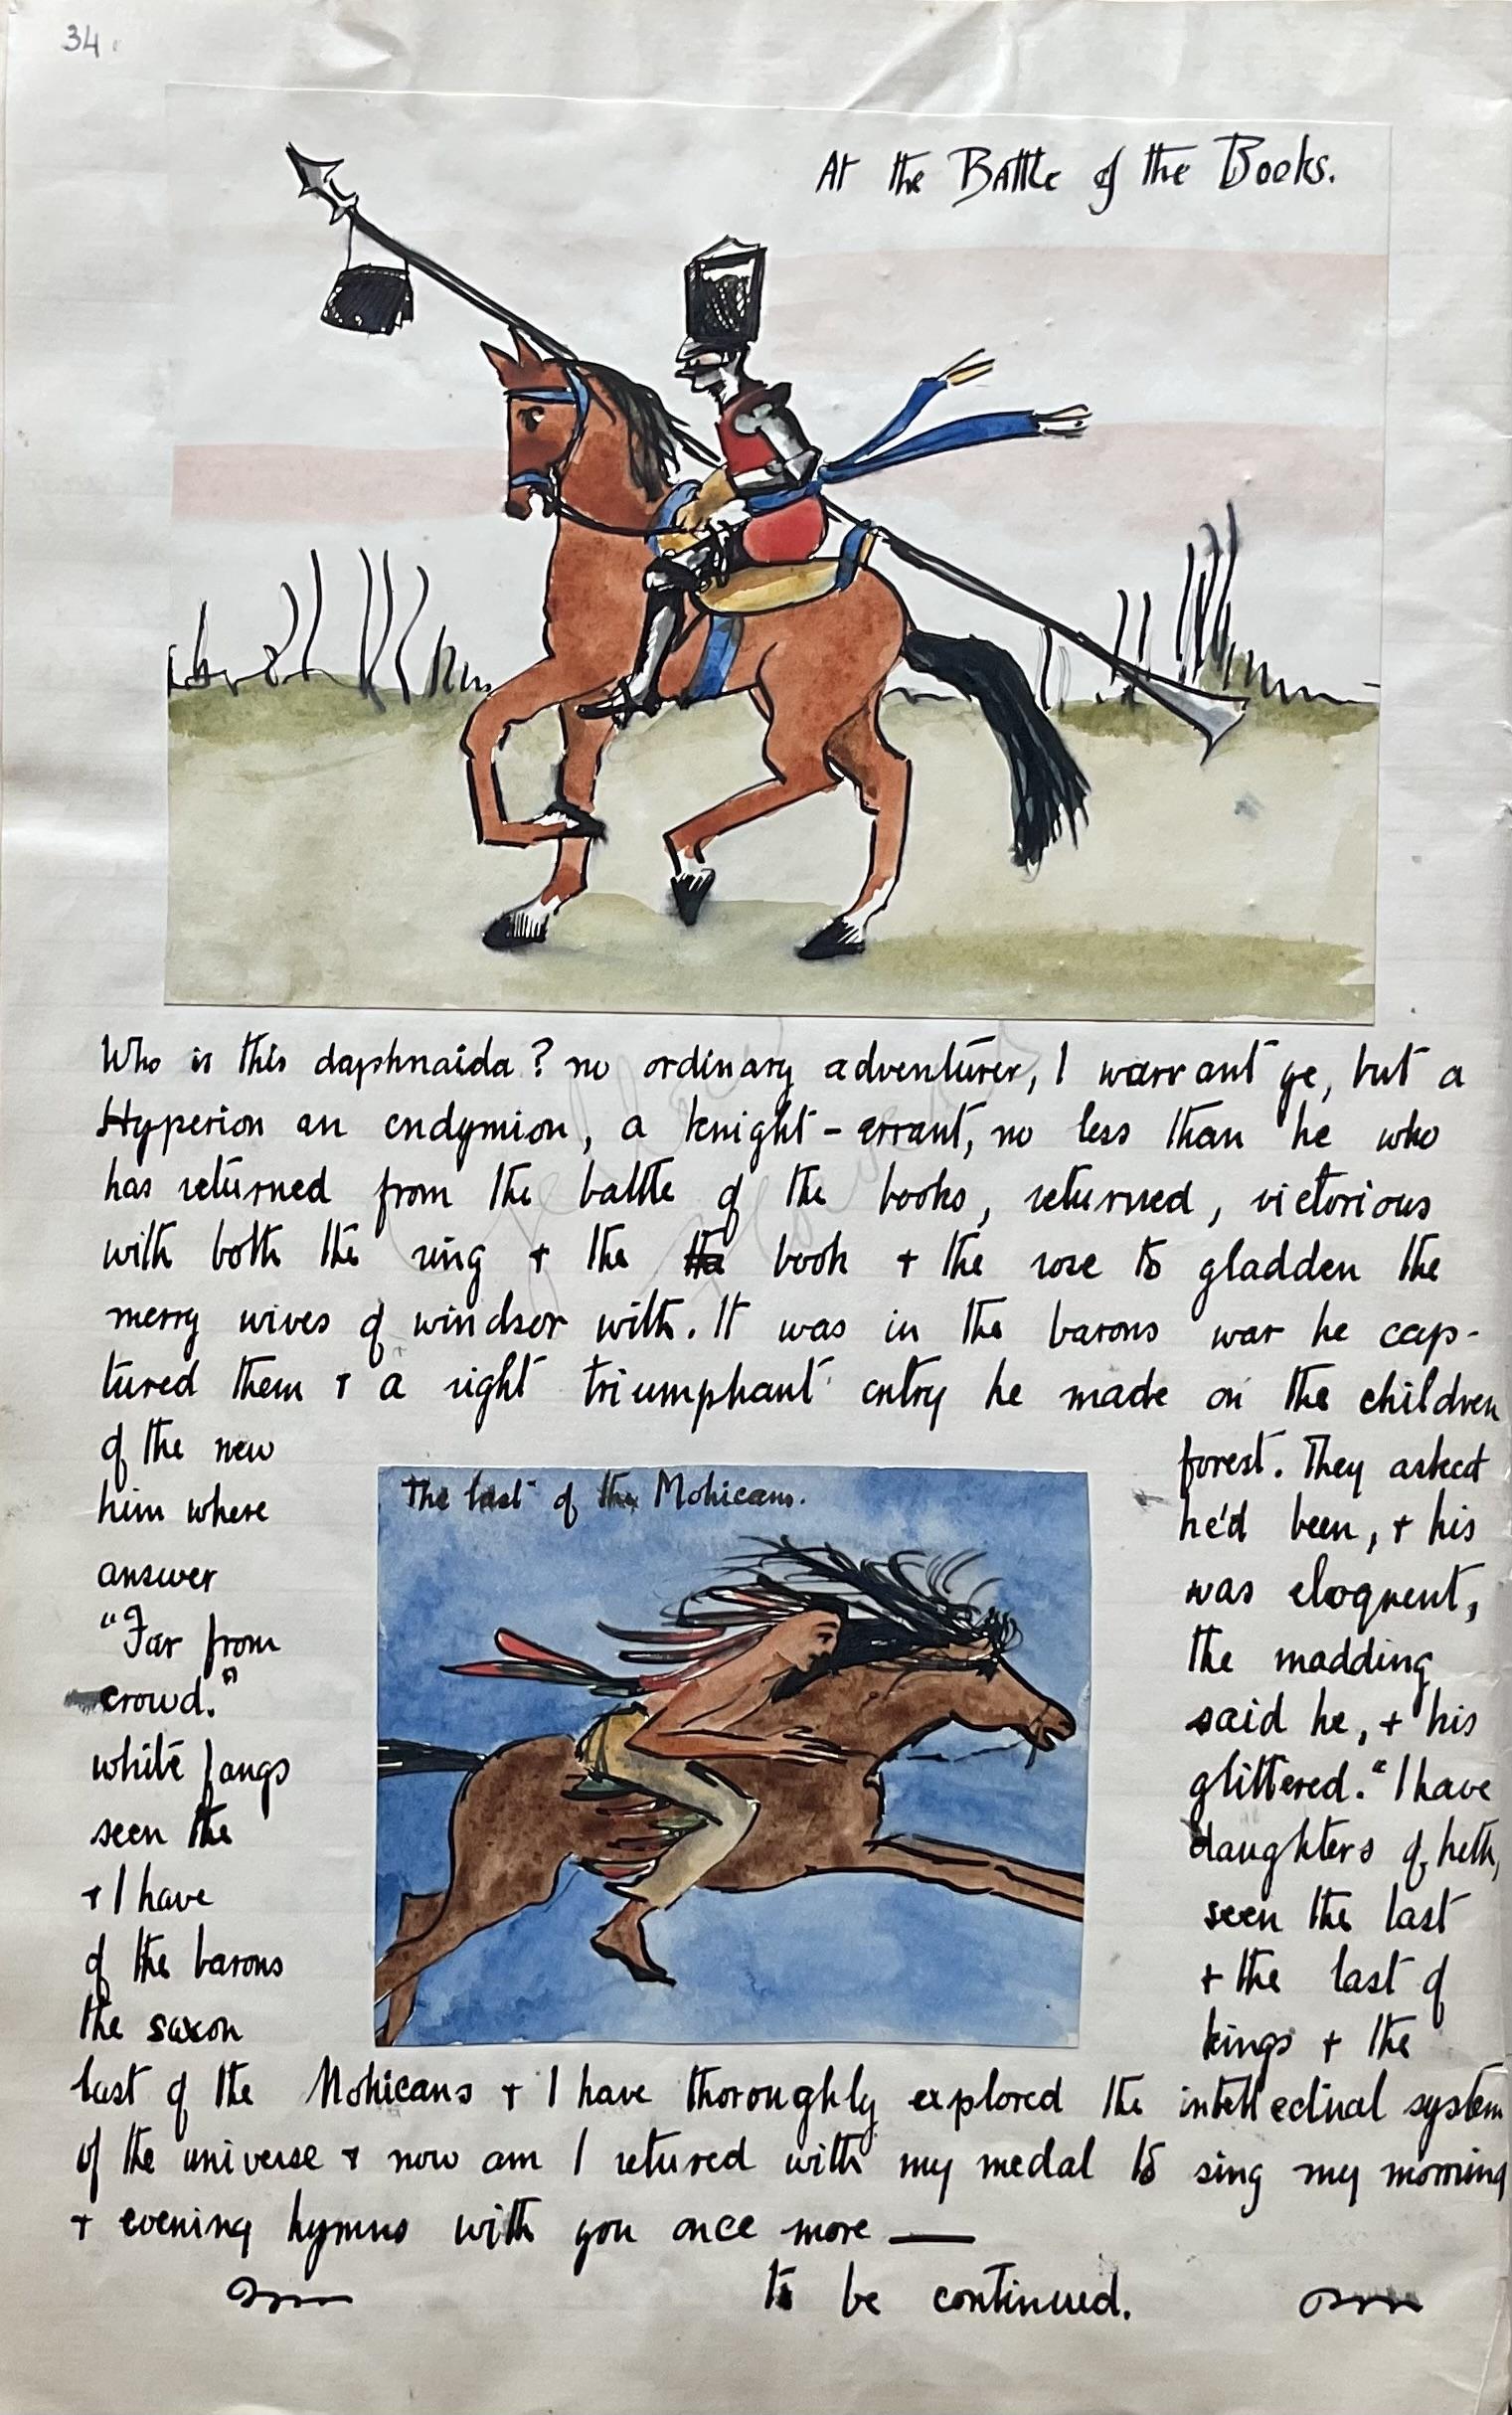 34.
At the Battle of the Books.
Who is this daphnaida? no ordinary adventurer, I warrant ye, but a
Hyperion an endymion, a knight-errant, no less than he who
has returned from the battle of the books, returned, victorious
with both the ring + the the book + the rose to gladden the
merry wives of windsor with. It was in the barons war he cap-
tured them + a right triumphant entry he made on the children
of the new forest. They asked
him where he'd been, + his
answer was eloquent,
"Far from the madding
crowd." said he, + his
white fangs glittered. "I have
seen the daughters of heth,
+ I have seen the last
of the barons + the last of
the saxon kings + the
The last of the Mohicans.
last of the Mohicans + I have thoroughly explored the intellectual system
of the universe + now am I retured with my medal to sing my morning
+ evening hymns with you once more —
to be continued.